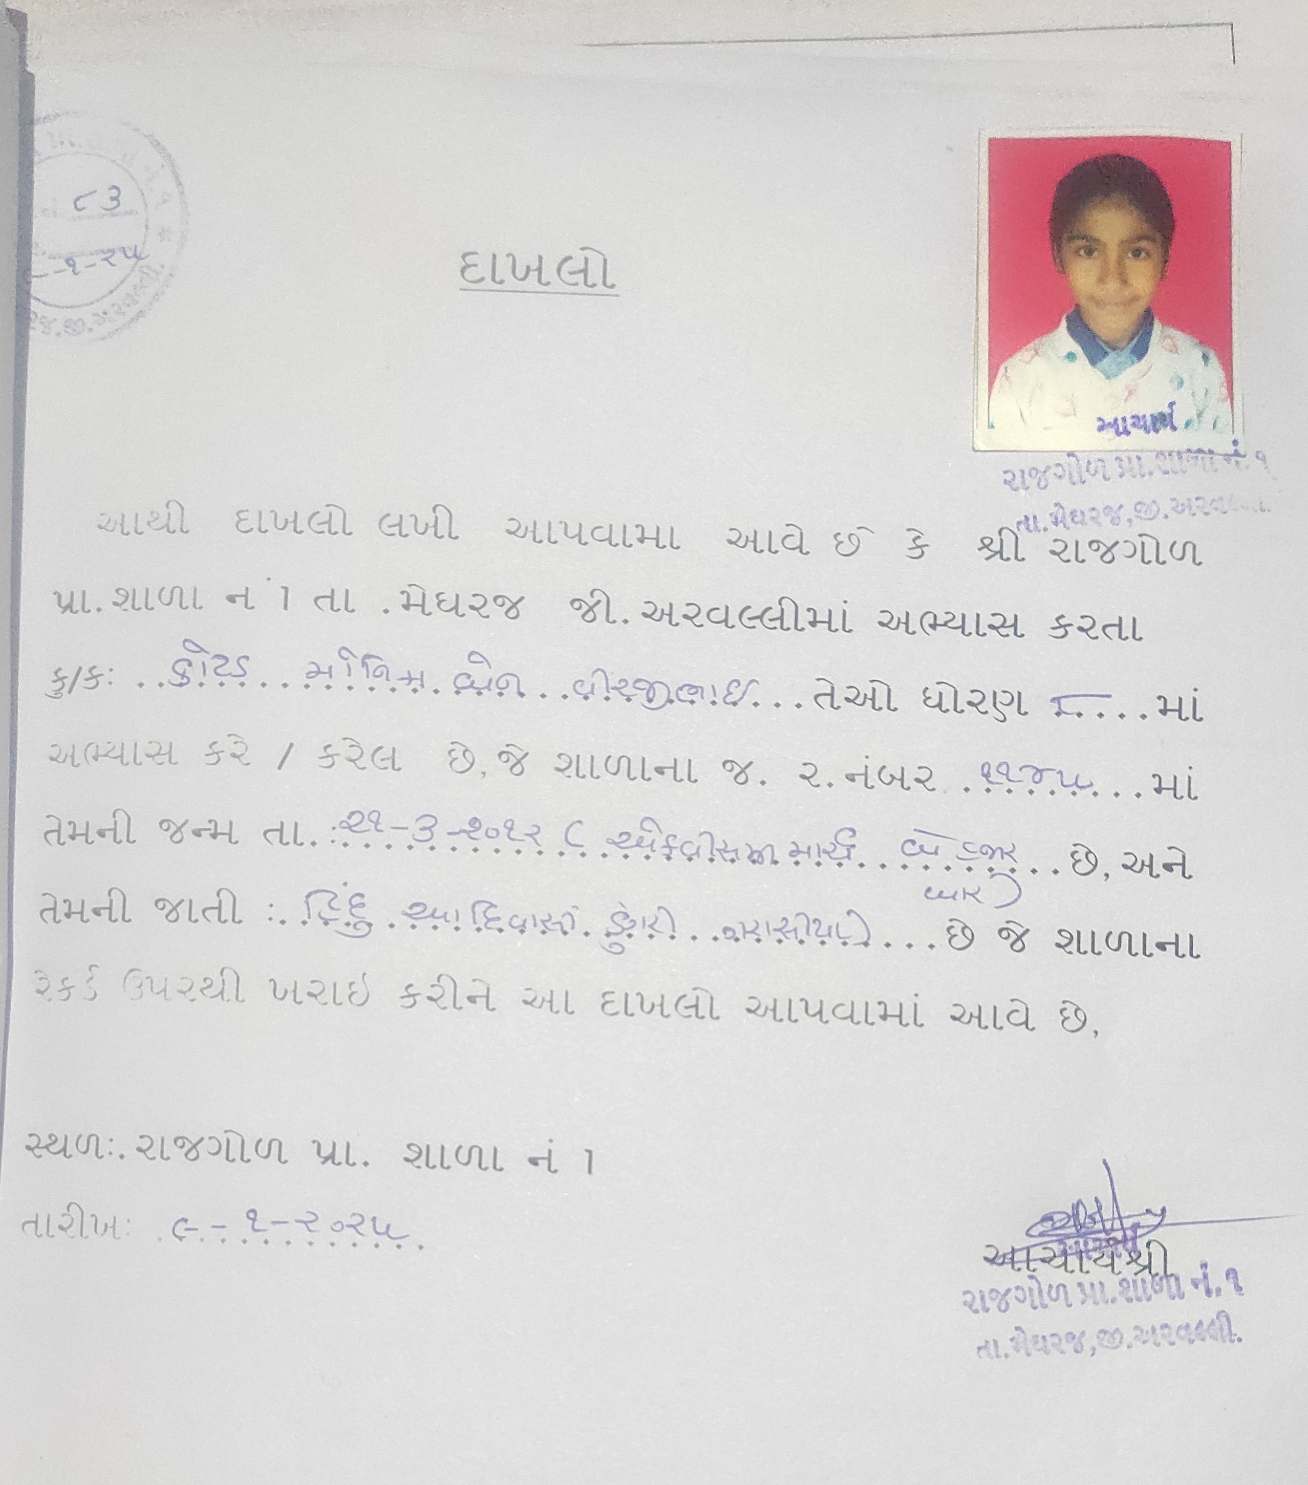 ૮૩
-૧-૨૫
જી.અરવલ્લી.
દાખલો
આચાર્ય
રાજગોળ પ્રા.શાળા નં.૧
તા.મેઘરજ,જી.અરવલ્લી
આથી દાખલો લખી આપવામા આવે છે કે શ્રી રાજગોળ
પ્રા.શાળા નં 1 તા .મેઘરજ જી.અરવલ્લીમાં અભ્યાસ કરતા
કુ/ક: ..કોટડ..મોનિમ બેન..વીરજીભાઇ...તેઓ ધોરણ ૮....માં
અભ્યાસ કરે / કરેલ છે,જે શાળાના જ. ર.નંબર .૧૧૪૫...માં
તેમની જન્મ તા.:૨૧-૩-૨૦૧૨ ( એકવીસમી માર્ચ..બે હજાર...છે,અને
બાર)
તેમની જાતી :.હિંદુ .આદિવાસી. ડુંગરી..ગરાસીયા...છે જે શાળાના
રેકર્ડ ઉપરથી ખરાઇ કરીને આ દાખલો આપવામાં આવે છે,
સ્થળ:.રાજગોળ પ્રા. શાળા નં 1
તારીખ: ૯-૧-૨૦૨૫
આચાર્યશ્રી
રાજગોળ પ્રા.શાળા નં.૧
તા.મેઘરજ,જી.અરવલ્લી.